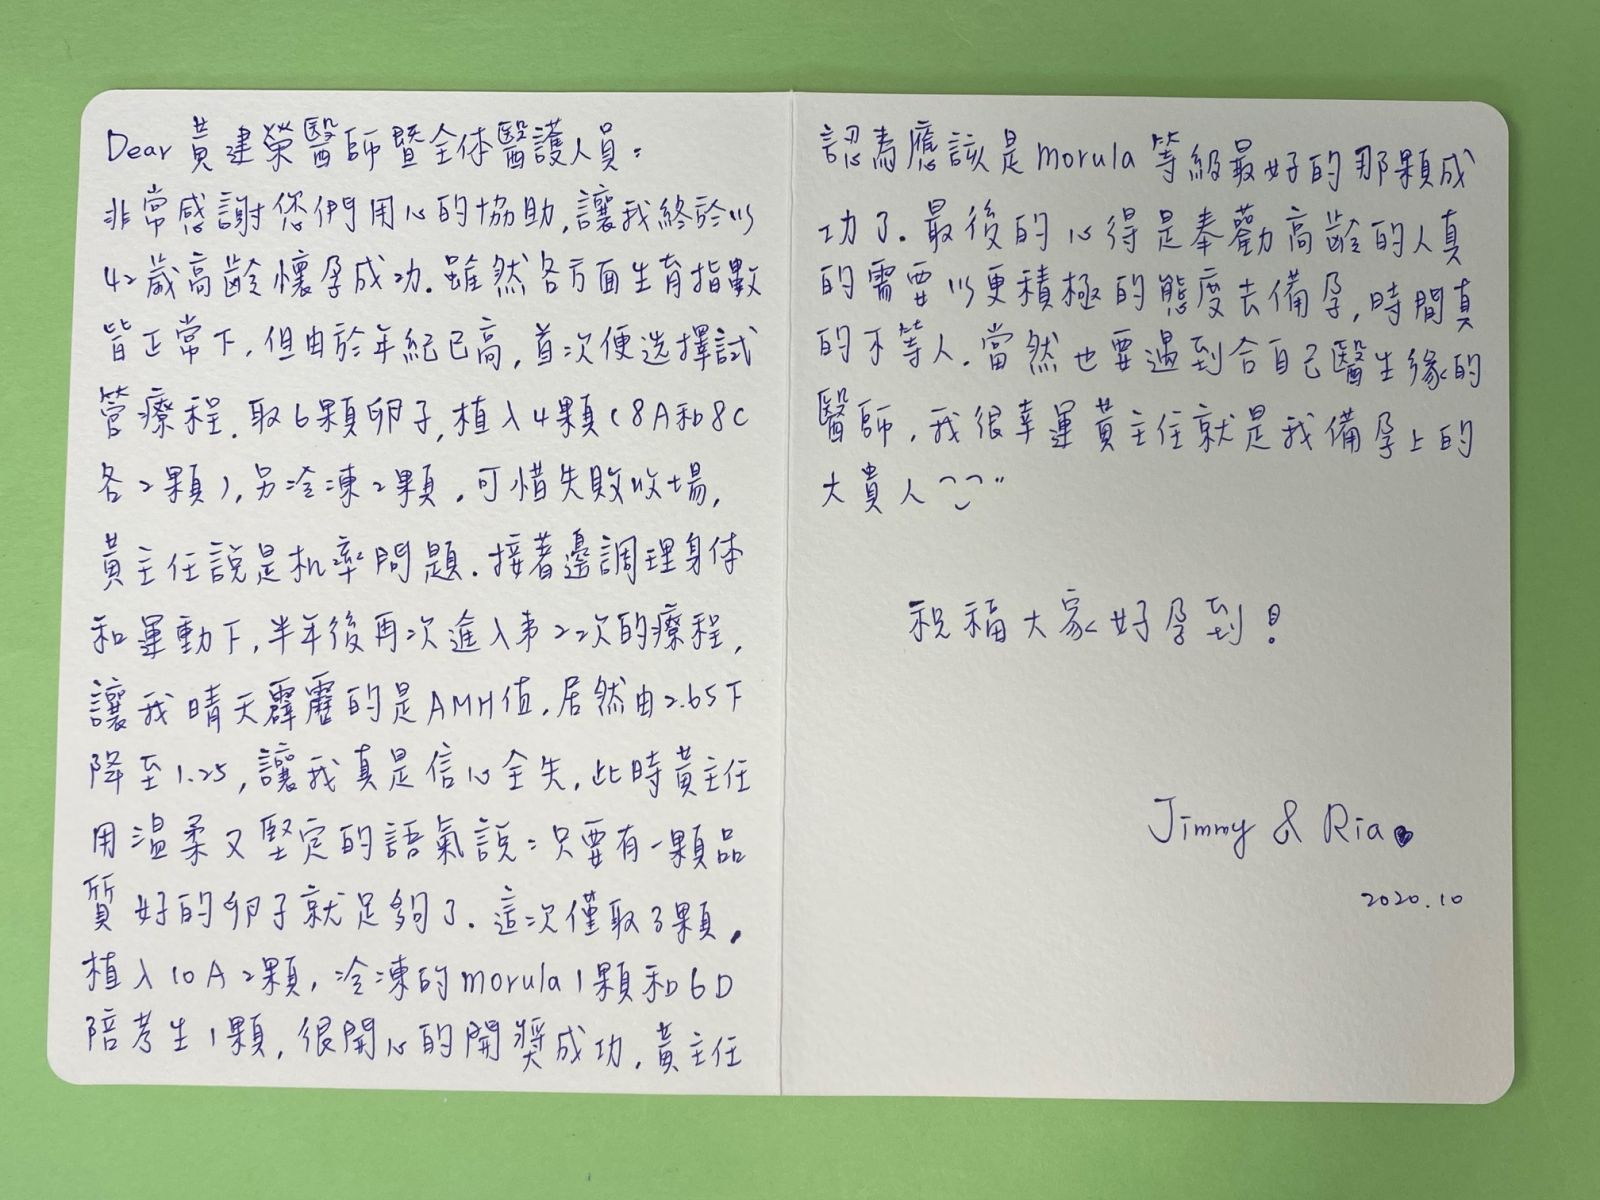 Dear 黃建榮醫師暨全体醫護人員：
非常感謝您們用心的協助，讓我終於以
42歲高齡懷孕成功．雖然各方面生育指數
皆正常下，但由於年紀已高，首次便选擇試
管療程．取6顆卵子，植入4顆（8A和8C
各2顆），另冷凍2顆．可惜失敗收場，
黃主任說是机率問題．接著邊調理身体
和運動下，半年後再次進入第22次的療程，
讓我晴天霹靂的是AMH值，居然由2.65下
降至1.25，讓我真是信心全失，此時黃主任
用溫柔又堅定的語氣說：只要有一顆品
質好的卵子就足夠了．這次僅取3顆，
植入10A 2顆，冷凍的morula 1顆和6D
陪考生1顆，很開心的開獎成功．黃主任
認為應該是morula等級最好的那顆成
功了．最後的心得是奉勸高齡的人真
的需要以更積極的態度去備孕，時間真
的不等人．當然也要遇到合自己醫生緣的
醫師，我很幸運黃主任就是我備孕上的
大貴人
祝福大家好孕到！
Jimmy & Ria
2020.10